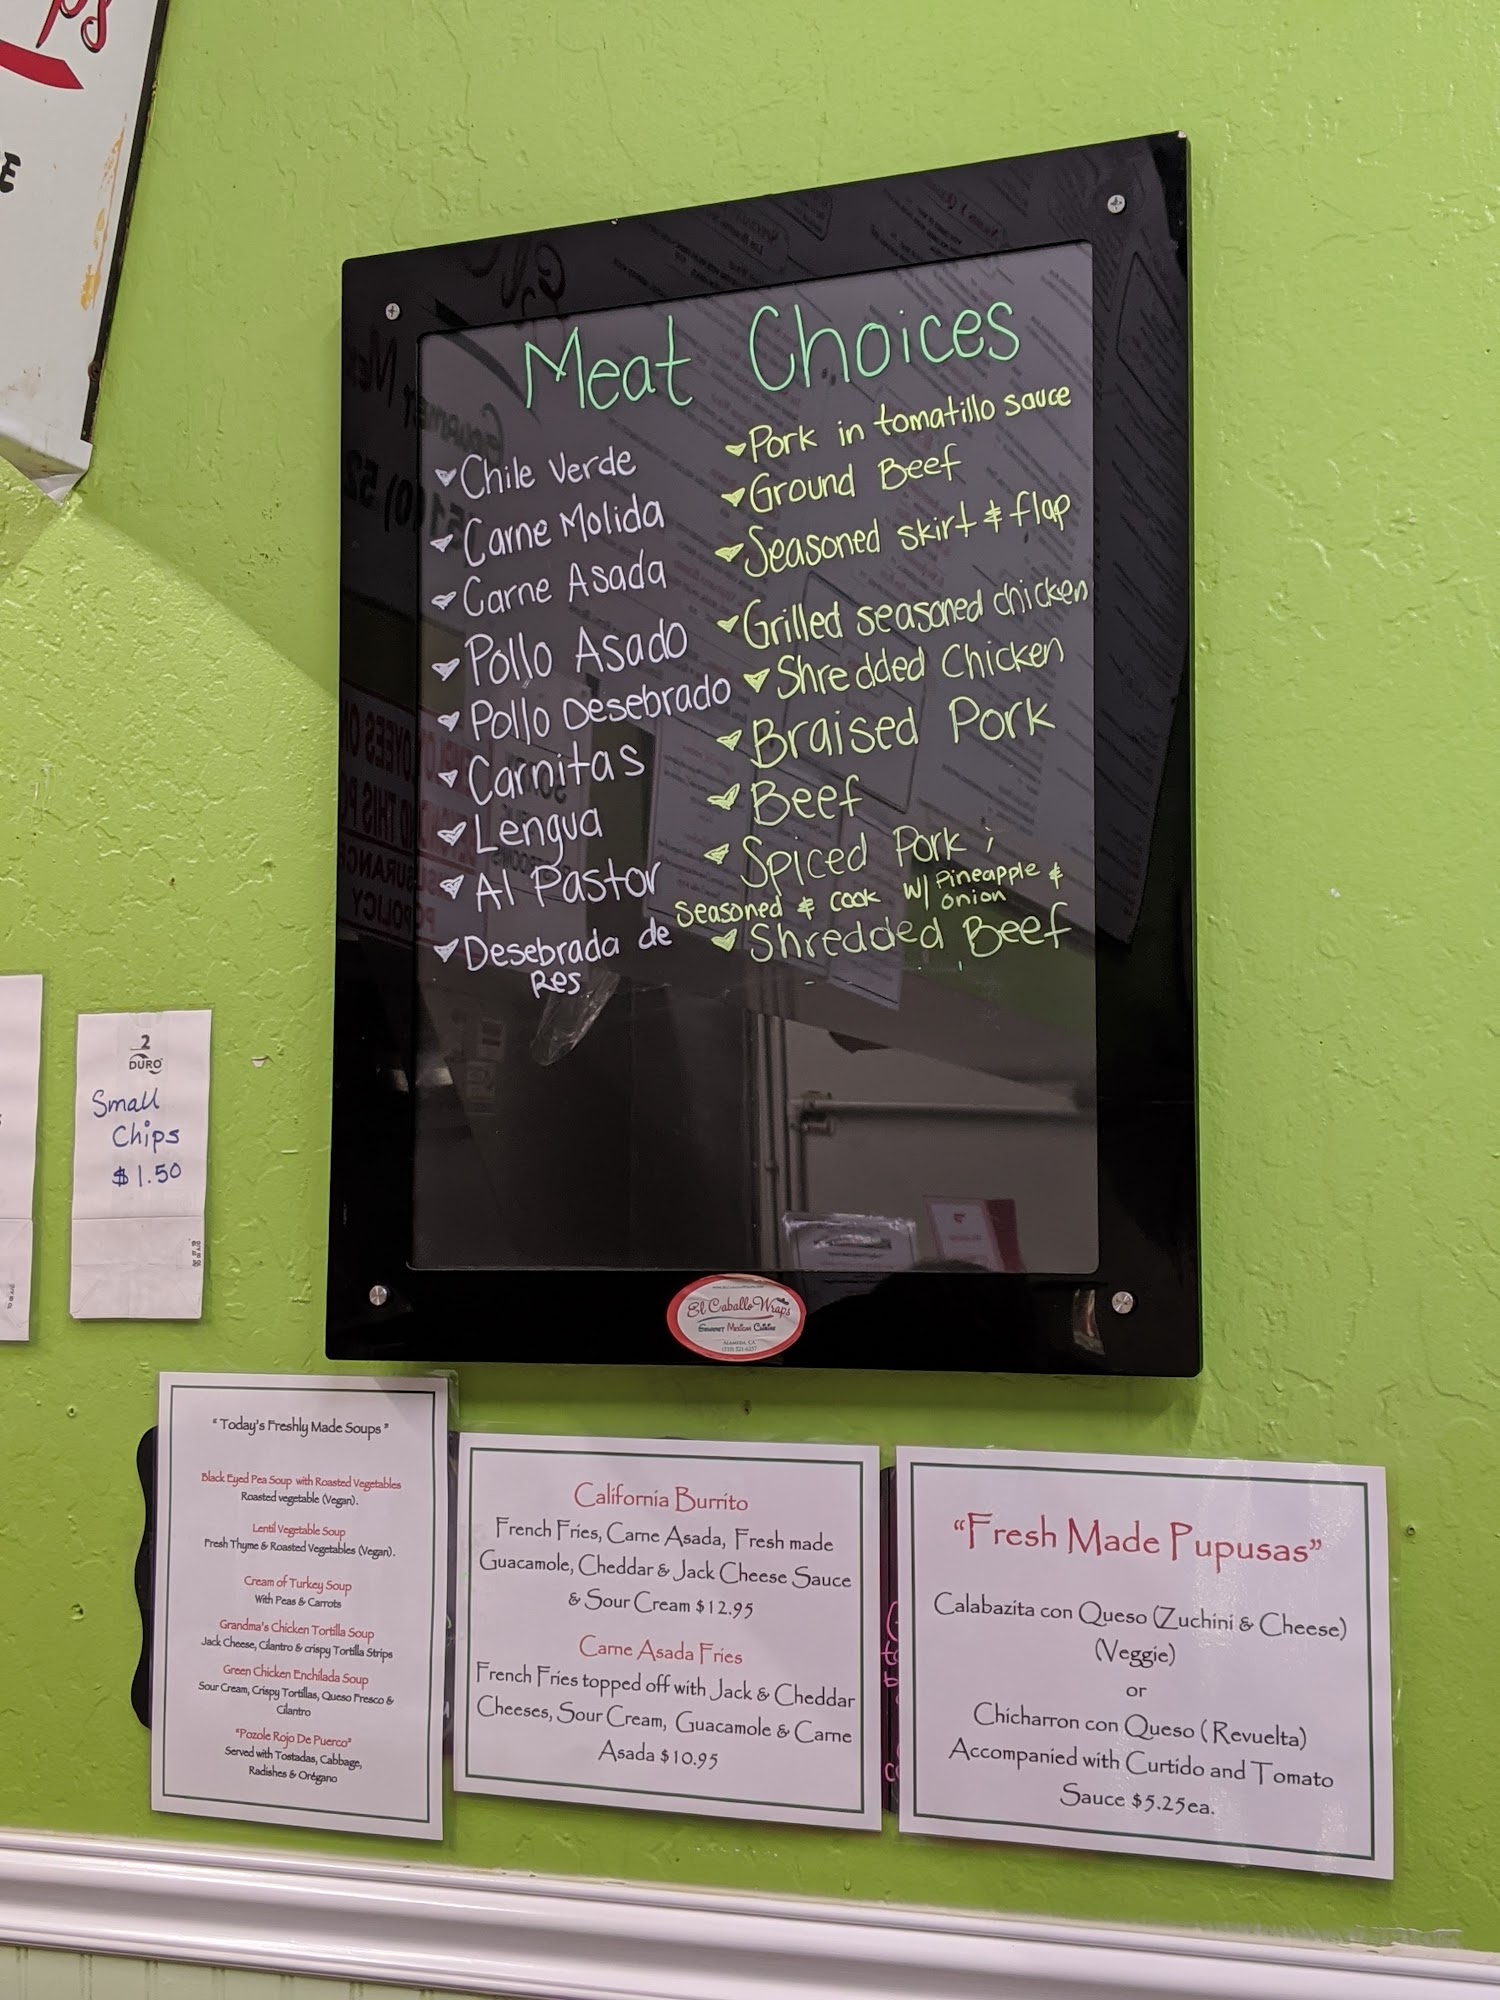 Meat Choices
Chile Verde
Carne Molida
Carne Asada
Pollo Asado
Pollo Desebrado
Carnitas
Lengua
Al Pastor
Desebrada de
Res
Pork in tomatillo sauce
Ground Beef
Seasoned skirt & flap
Grilled seasoned chicken
Shredded Chicken
Braised Pork
Beef
Spiced Pork ;
seasoned & cook w/ Pineapple &
onion
Shredded Beef
El Caballo Wraps
Gourmet Mexican Cuisine
ALAMEDA, CA
(510) 521-6257
2
DURO
Small
Chips
$1.50
"Today's Freshly Made Soups"
Black Eyed Pea Soup with Roasted Vegetables
Roasted vegetable (Vegan).
Lentil Vegetable Soup
Fresh Thyme & Roasted Vegetables (Vegan).
Cream of Turkey Soup
With Peas & Carrots
Grandma's Chicken Tortilla Soup
Jack Cheese, Cilantro & crispy Tortilla Strips
Green Chicken Enchilada Soup
Sour Cream, Crispy Tortillas, Queso Fresco &
Cilantro
"Pozole Rojo De Puerco"
Served with Tostadas, Cabbage,
Radishes & Orégano
California Burrito
French Fries, Carne Asada, Fresh made
Guacamole, Cheddar & Jack Cheese Sauce
& Sour Cream $12.95
Carne Asada Fries
French Fries topped off with Jack & Cheddar
Cheeses, Sour Cream, Guacamole & Carne
Asada $10.95
"Fresh Made Pupusas"
Calabazita con Queso (Zuchini & Cheese)
(Veggie)
or
Chicharron con Queso (Revuelta)
Accompanied with Curtido and Tomato
Sauce $5.25ea.